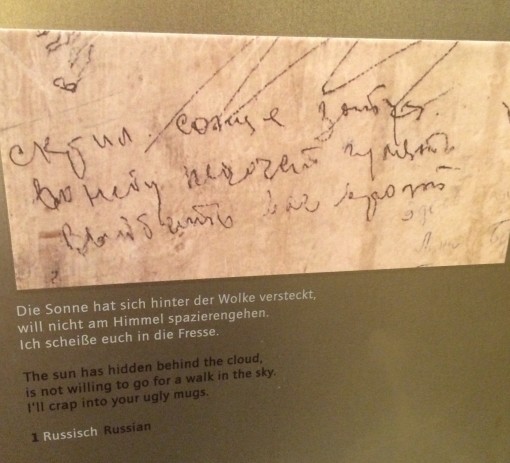 сонце
небу нехочет гулять
вас
Die Sonne hat sich hinter der Wolke versteckt,
will nicht am Himmel spazierengehen.
Ich scheiße euch in die Fresse.
The sun has hidden behind the cloud,
is not willing to go for a walk in the sky.
I'll crap into your ugly mugs.
1 Russisch Russian